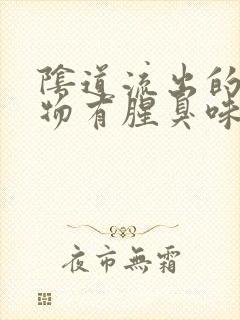 陰道流出的
物有腥臭味
夜市無霜